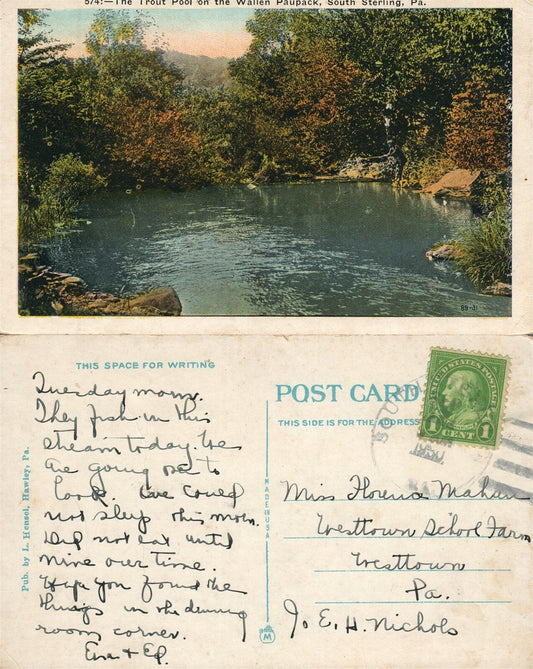 574:—The Trout Pool on the Wallen Paupack, South Sterling, Pa.
89-31
THIS SPACE FOR WRITING
Tuesday morn.
They fish in this
stream today. We
are going out to
look. We could
not sleep this morn.
Did not eat until
nine our time.
Hope you found the
things in the dining
room corner.
Eva + Ed.
Pub. by L. Hensel, Hawley, Pa.
MADE IN USA
M
POST CARD
THIS SIDE IS FOR THE ADDRESS
UNITED STATES POSTAGE
1 CENT 1
SOUTH
1930
Miss Florence Mahan
Westtown School Farm
Westtown
Pa.
℅ E. H. Nichols